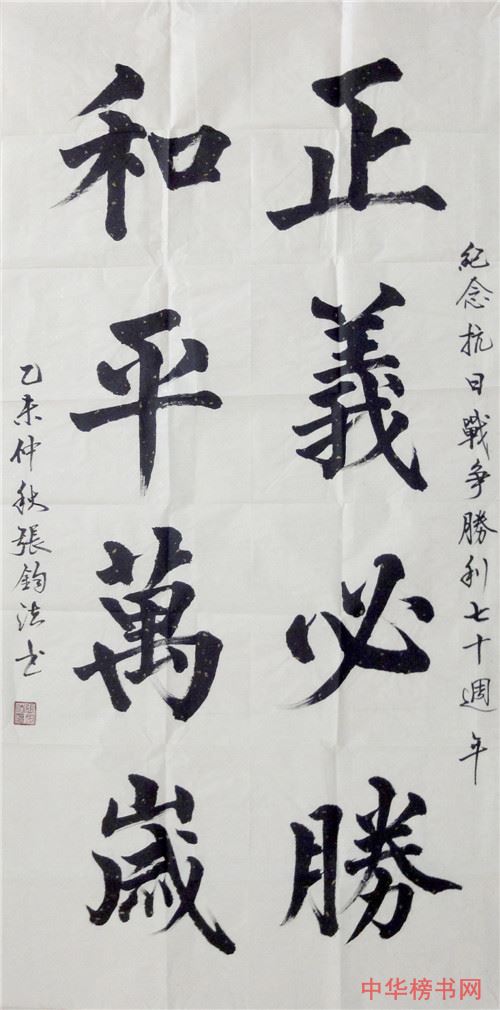 紀念抗日戰爭勝利七十週年
正義必勝
和平萬歲
乙未仲秋張鈞法书
中华榜书网